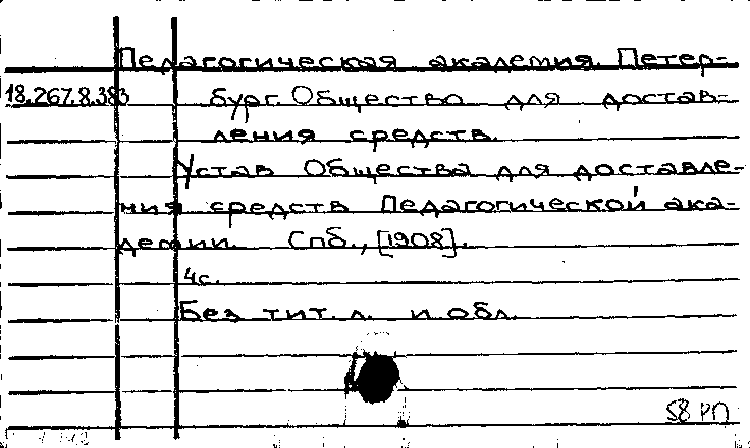 Педагогическая академия. Петер-
18.267.8.383 бург. Общество для достав-
ления средств.
Устав Общества для доставле-
ния средств Педагогической ака-
демии. Спб., [1908].
4с.
Без тит. л. и обл.
58 РП